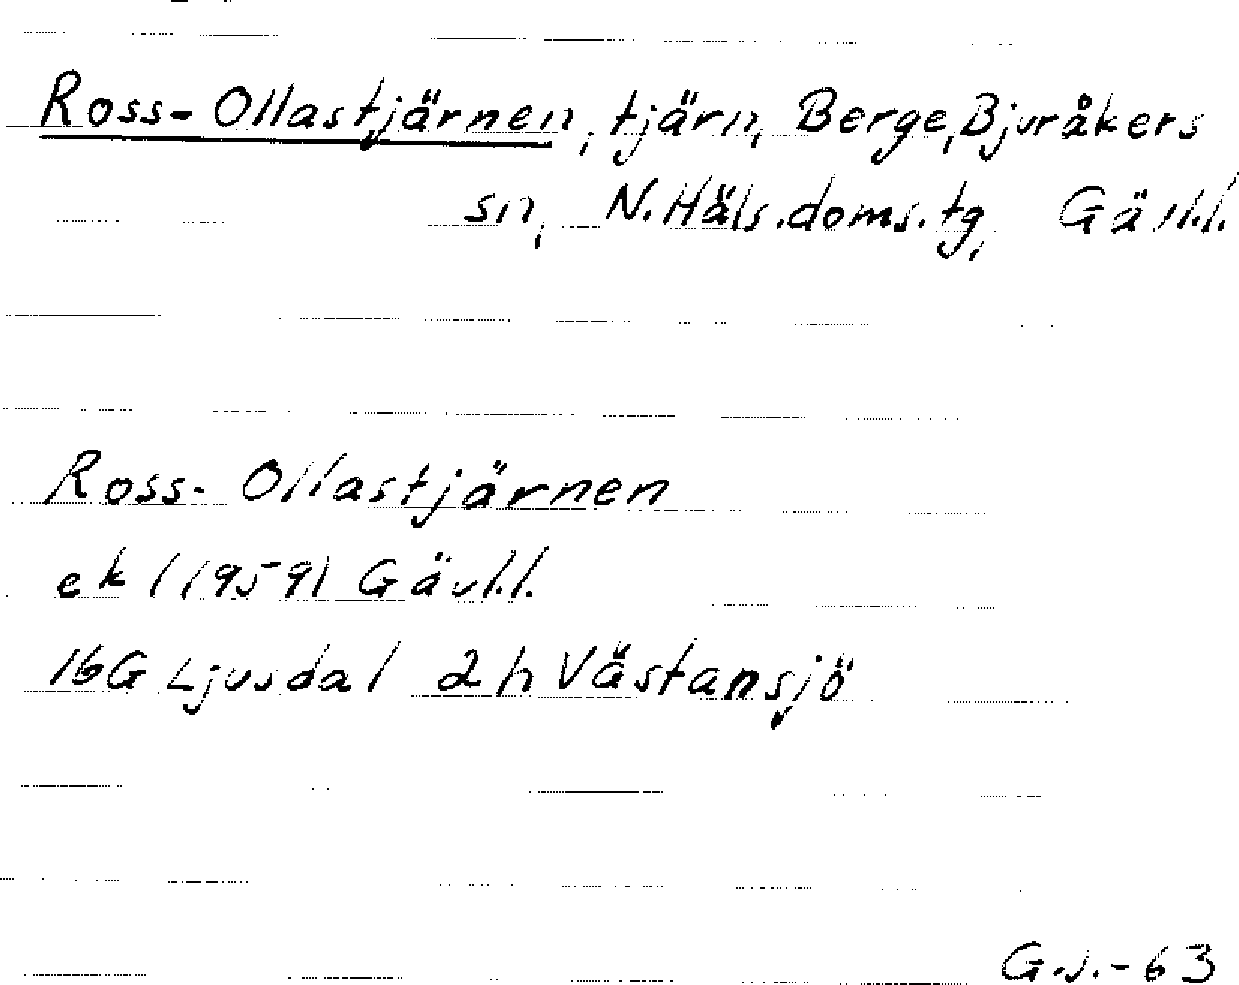 Ross-Ollastjärnen, tjärn, Berge, Bjuråkers
sn, N. Häls. doms. tg, Gävl.l.
Ross-Ollastjärnen
ek (1959) Gävl.l.
16G Ljusdal 2h Västansjö
G.J.-63